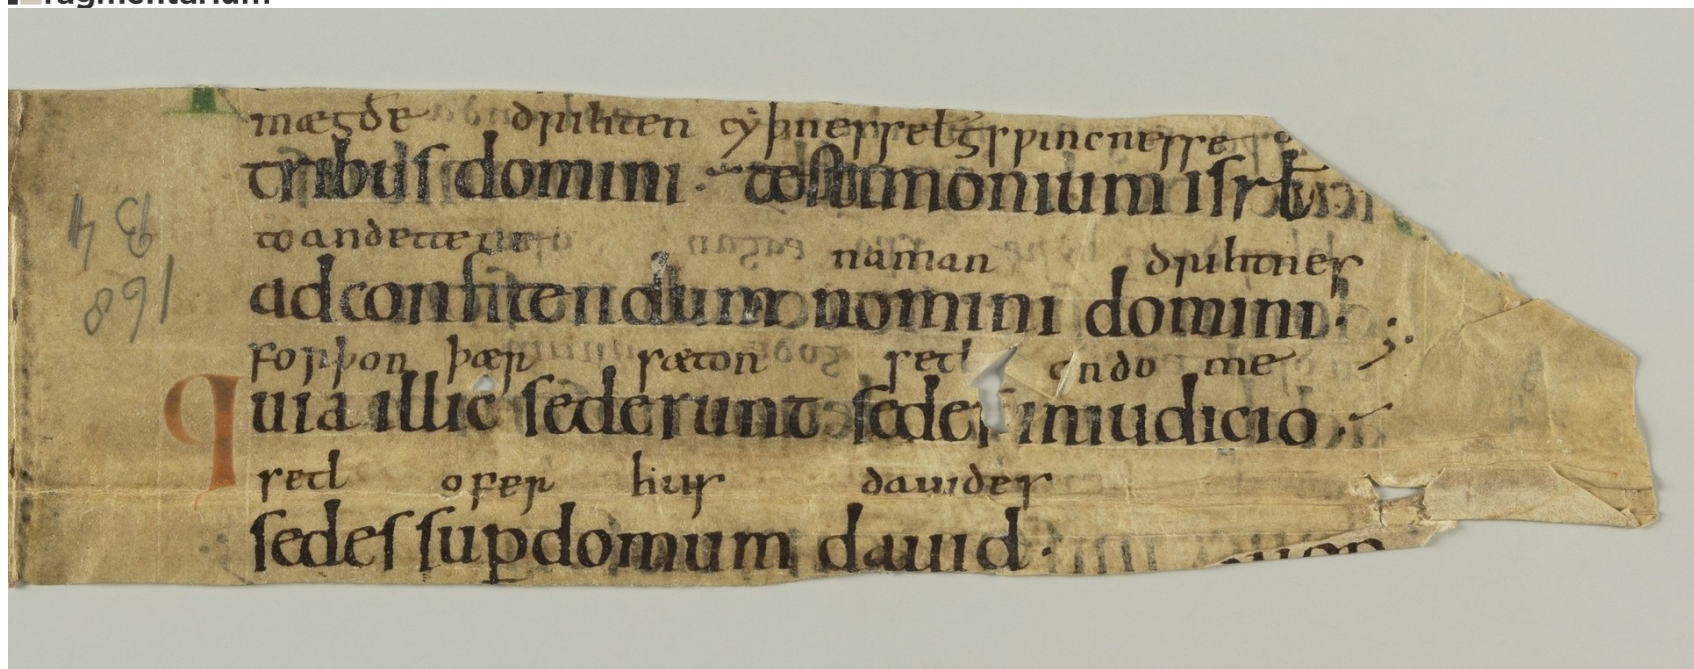 mægðe drihten cyþnesse ł gswincnesse
tribus domini · testimonium isrł
to andettenne naman drihtnes
ad confitendum nomini domini ;
forþon þær sæton setl on dome
quia illic sederunt sedes in iudicio
setl ofer hus dauides
sedes sup domum dauid ·
B 4
168